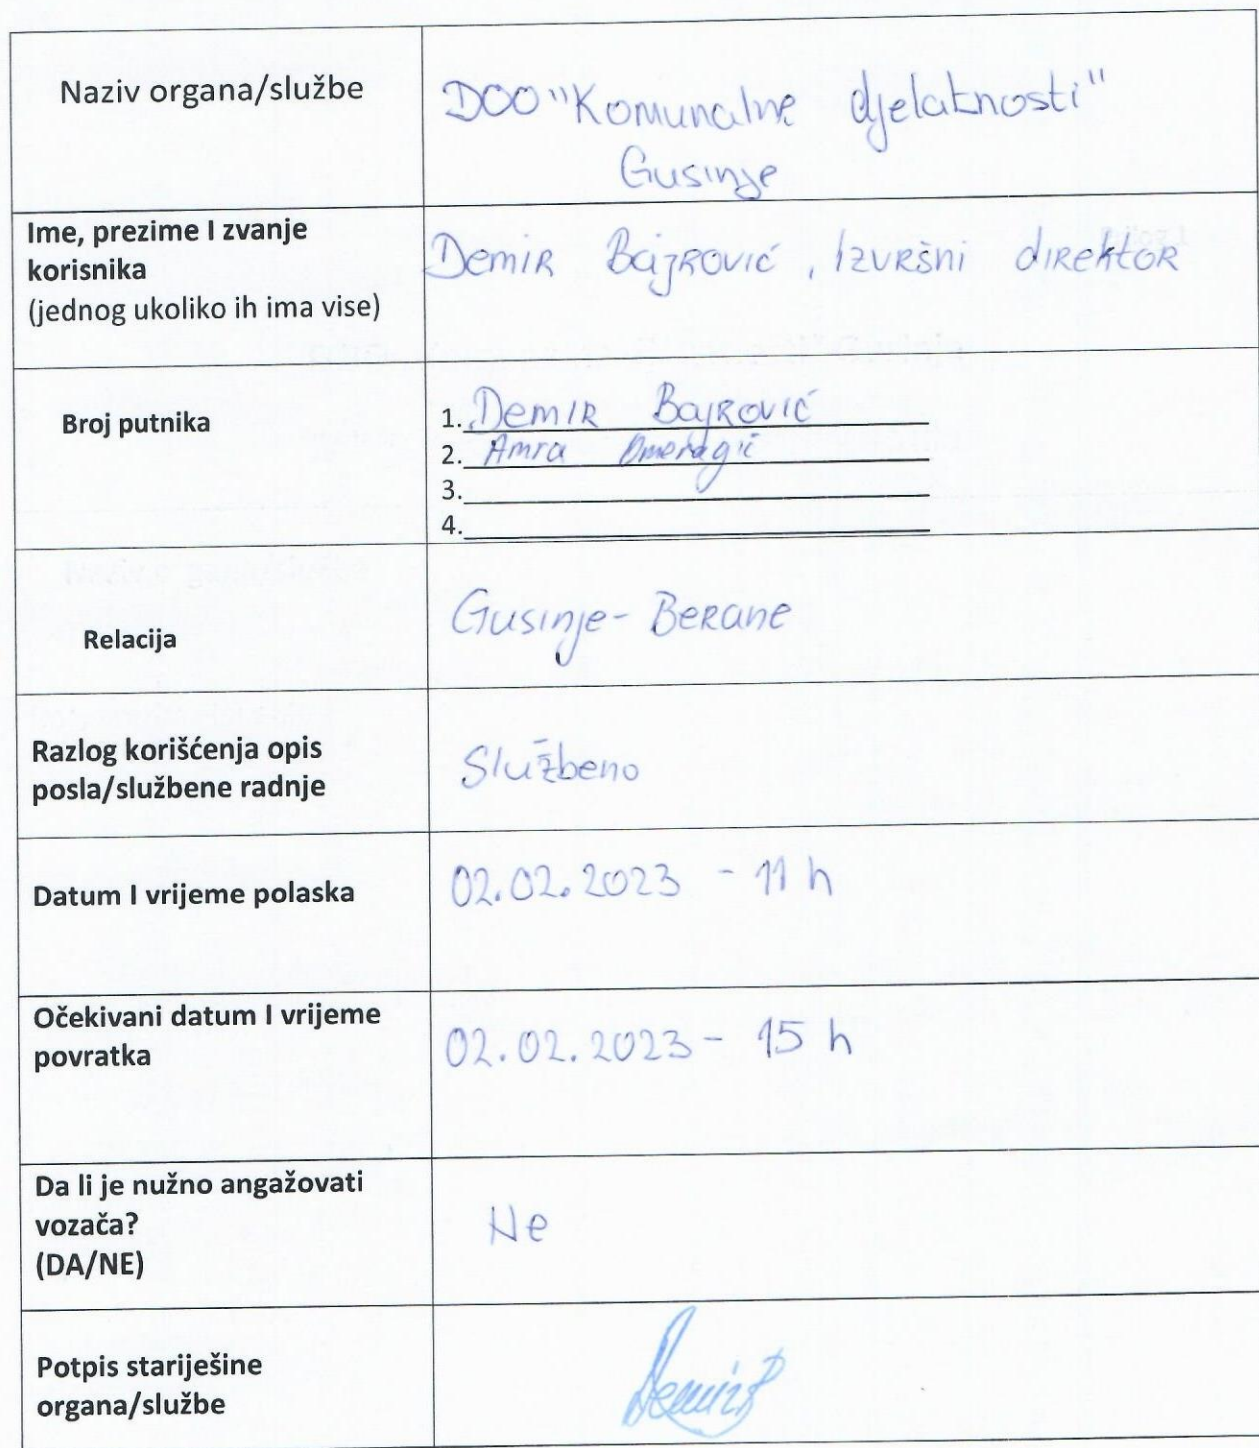 Naziv organa/službe
DOO "Komunalne djelatnosti"
Gusinje
Ime, prezime I zvanje
korisnika
(jednog ukoliko ih ima vise)
Demir Bajrović, Izvršni direktor
Broj putnika
1. Demir Bajrović
2. Amra Omeragić
3.
4.
Relacija
Gusinje - Berane
Razlog korišćenja opis
posla/službene radnje
Službeno
Datum I vrijeme polaska
02.02.2023 - 11 h
Očekivani datum I vrijeme
povratka
02.02.2023 - 15 h
Da li je nužno angažovati
vozača?
(DA/NE)
Ne
Potpis starješine
organa/službe